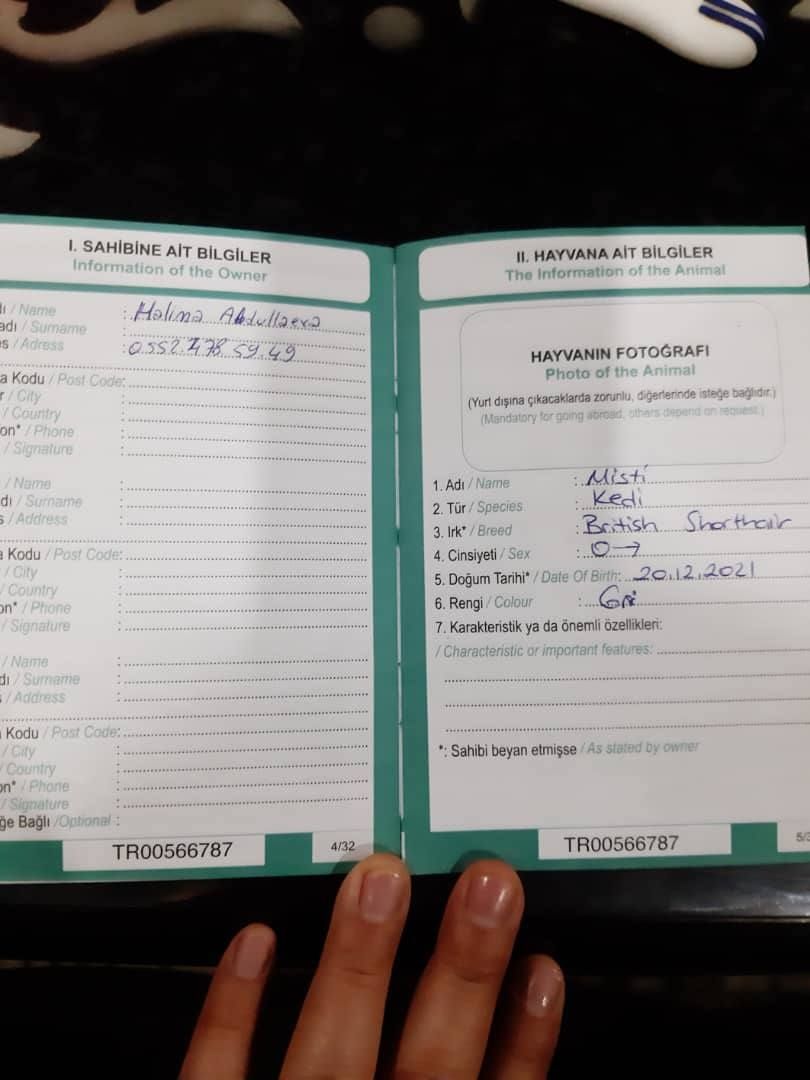 I. SAHİBİNE AİT BİLGİLER
Information of the Owner
dı / Name : Halina Abdullaeva
adı / Surname
s / Adress : 0552.478.59.49
a Kodu / Post Code:
r / City :
/ Country :
on* / Phone :
/ Signature :
/ Name :
dı / Surname :
s / Address :
a Kodu / Post Code:
/ City :
/ Country :
on* / Phone :
/ Signature :
/ Name :
dı / Surname :
s / Address :
Kodu / Post Code:
/ City :
/ Country :
on* / Phone :
/ Signature :
ğe Bağlı /Optional :
TR00566787
4/32
II. HAYVANA AİT BİLGİLER
The Information of the Animal
HAYVANIN FOTOĞRAFI
Photo of the Animal
(Yurt dışına çıkacaklarda zorunlu, diğerlerinde isteğe bağlıdır.)
(Mandatory for going abroad, others depend on request.)
1. Adı / Name : Misti
2. Tür / Species : Kedi
3. Irk* / Breed : British Shorthair
4. Cinsiyeti / Sex : O→
5. Doğum Tarihi* / Date Of Birth: 20.12.2021
6. Rengi / Colour : Gri
7. Karakteristik ya da önemli özellikleri:
/ Characteristic or important features:
*: Sahibi beyan etmişse / As stated by owner
TR00566787
5/3